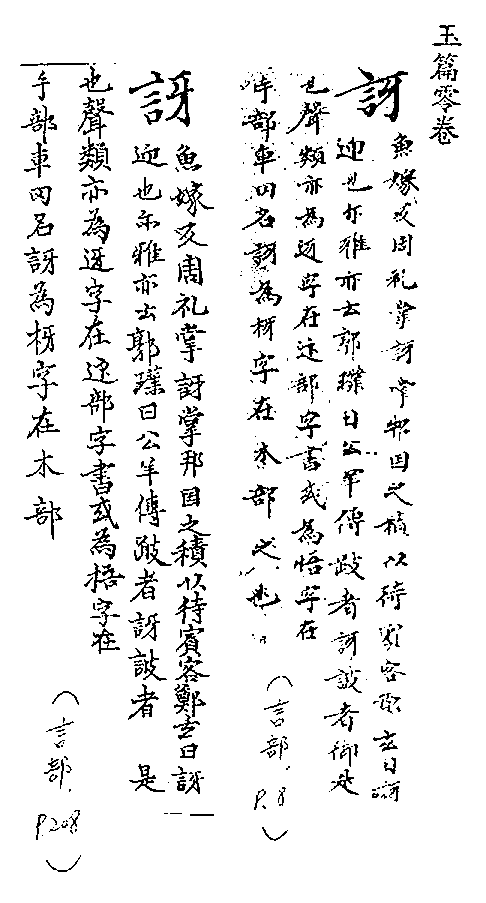 玉篇零卷
訝
魚嫁反周礼掌訝掌邦囯之積以待賓客鄭玄曰訝
迎也尓雅亦云郭璞曰公羊傳跛者訝詖者御是
也聲類亦為迓字在辵部字書或為捂字在
手部車罔名訝為枒字在木部之也
(言部. P.8)
訝
魚嫁反周礼掌訝掌邦囯之積以待賓客鄭玄曰訝
迎也尓雅亦云郭璞曰公羊傳跛者訝詖者 是
也聲類亦為迓字在辵部字書或為捂字在
手部車罔名訝為枒字在木部
(言部. P.208)